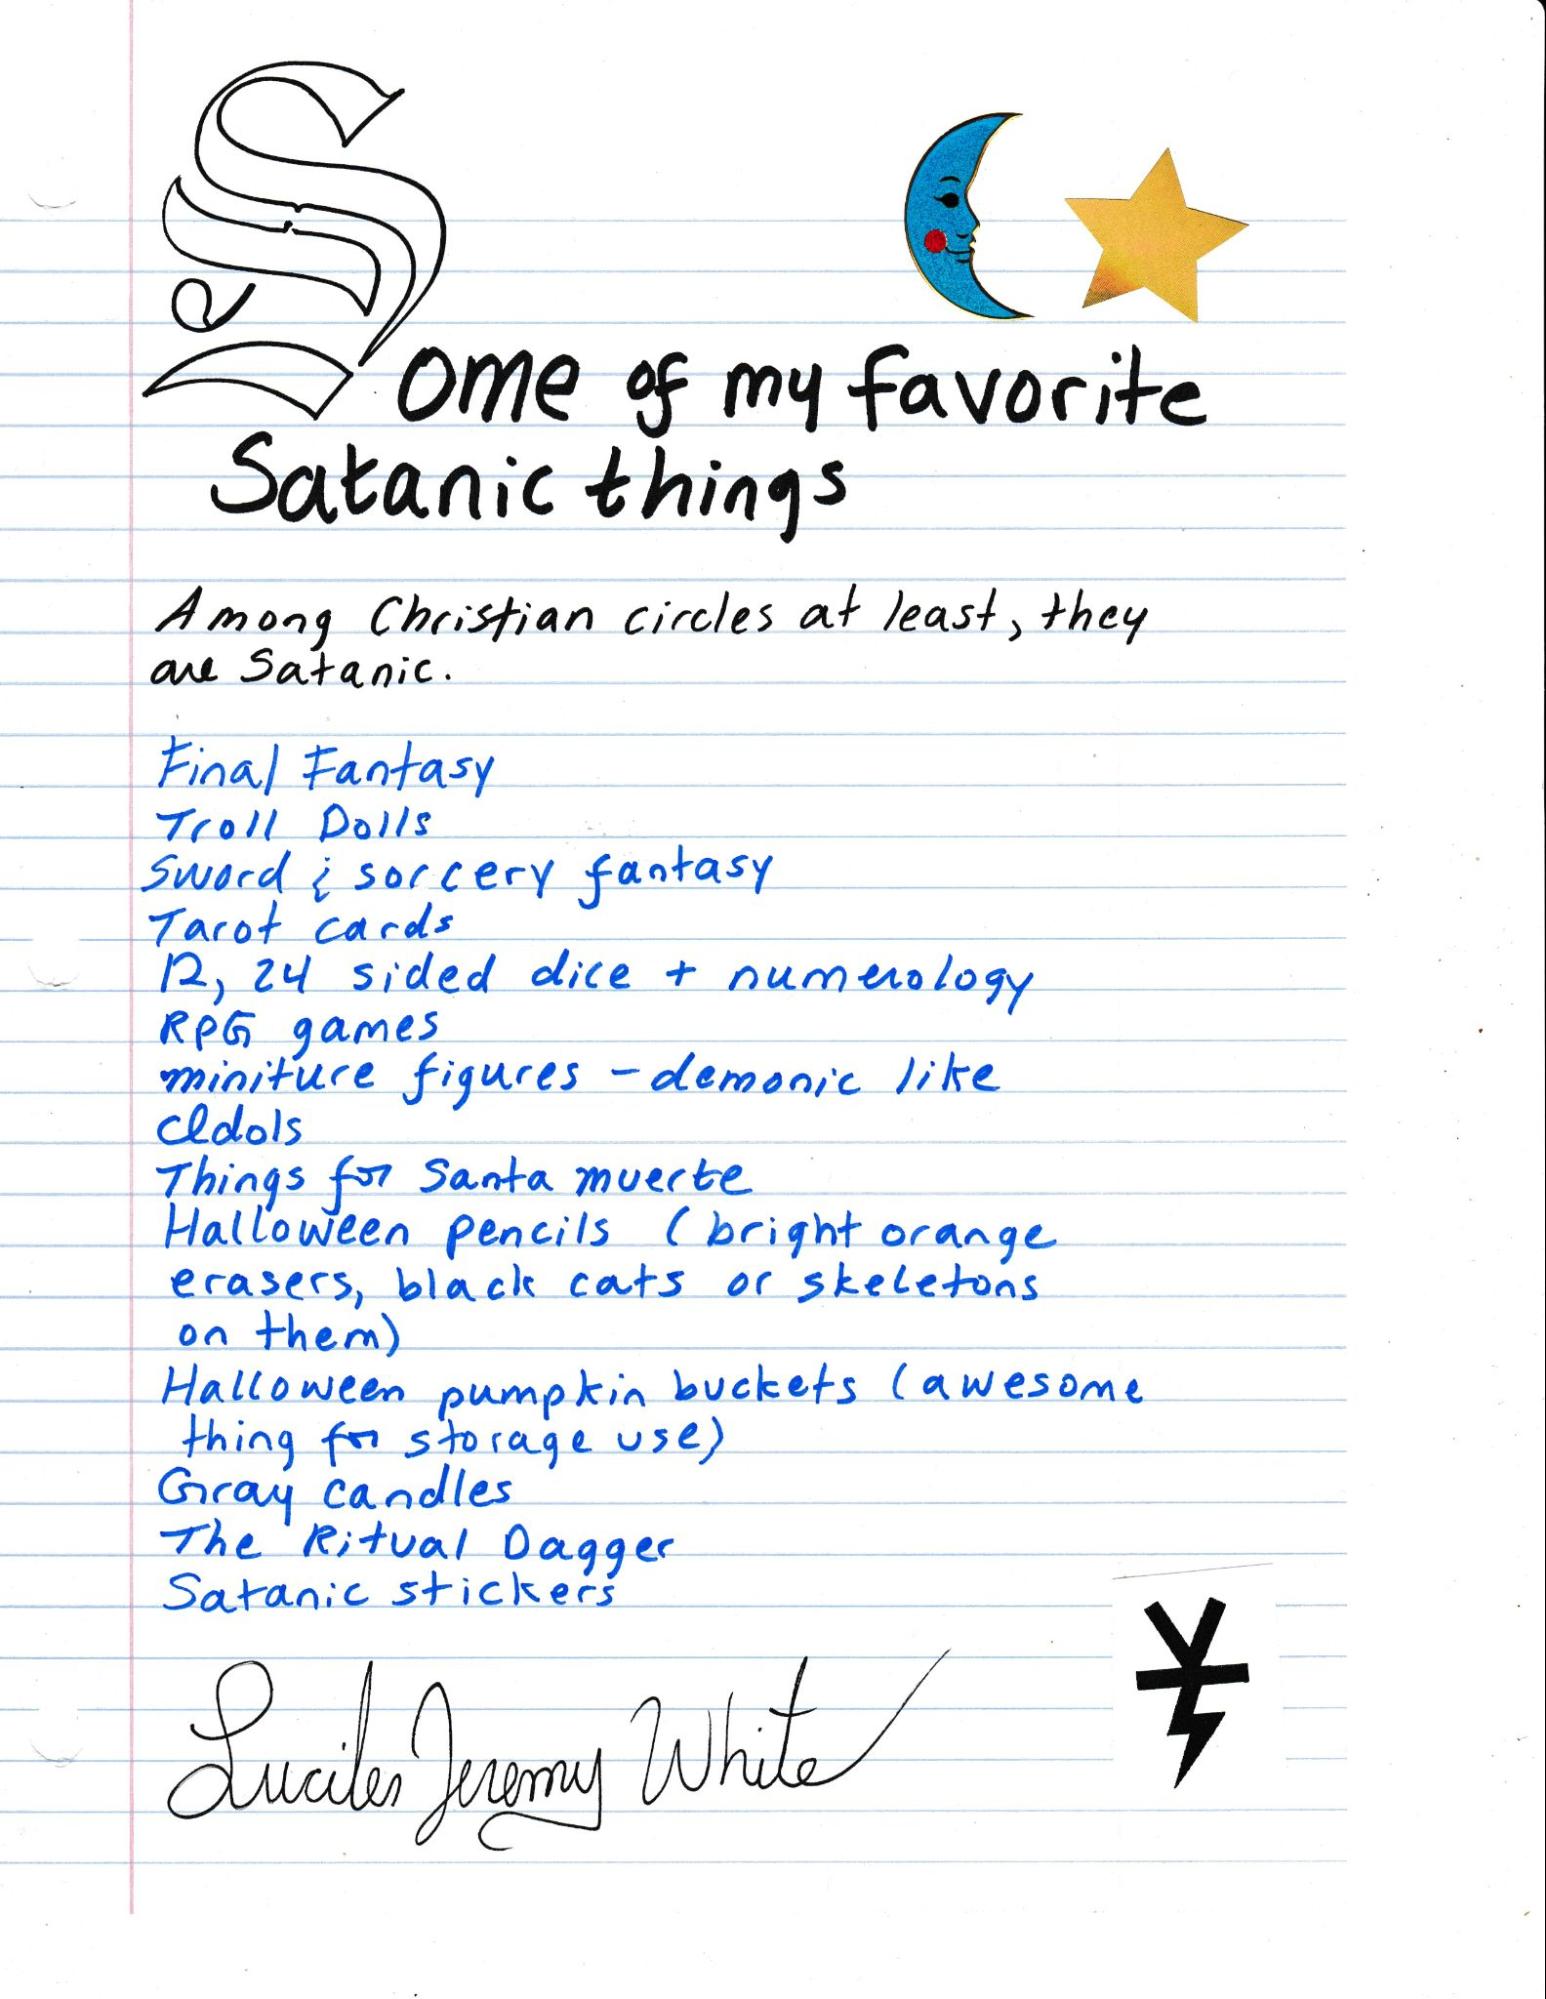 Some of my favorite
Satanic things
Among Christian circles at least, they
are Satanic.
Final Fantasy
Troll Dolls
Sword & sorcery fantasy
Tarot cards
12, 24 sided dice + numerology
RPG games
miniture figures - demonic like
Idols
Things for Santa muerte
Halloween pencils (bright orange
erasers, black cats or skeletons
on them)
Halloween pumpkin buckets (awesome
thing for storage use)
Gray candles
The Ritual Dagger
Satanic stickers
Jeremy White